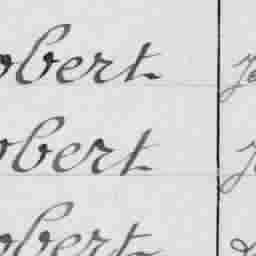 obert
obert
obert